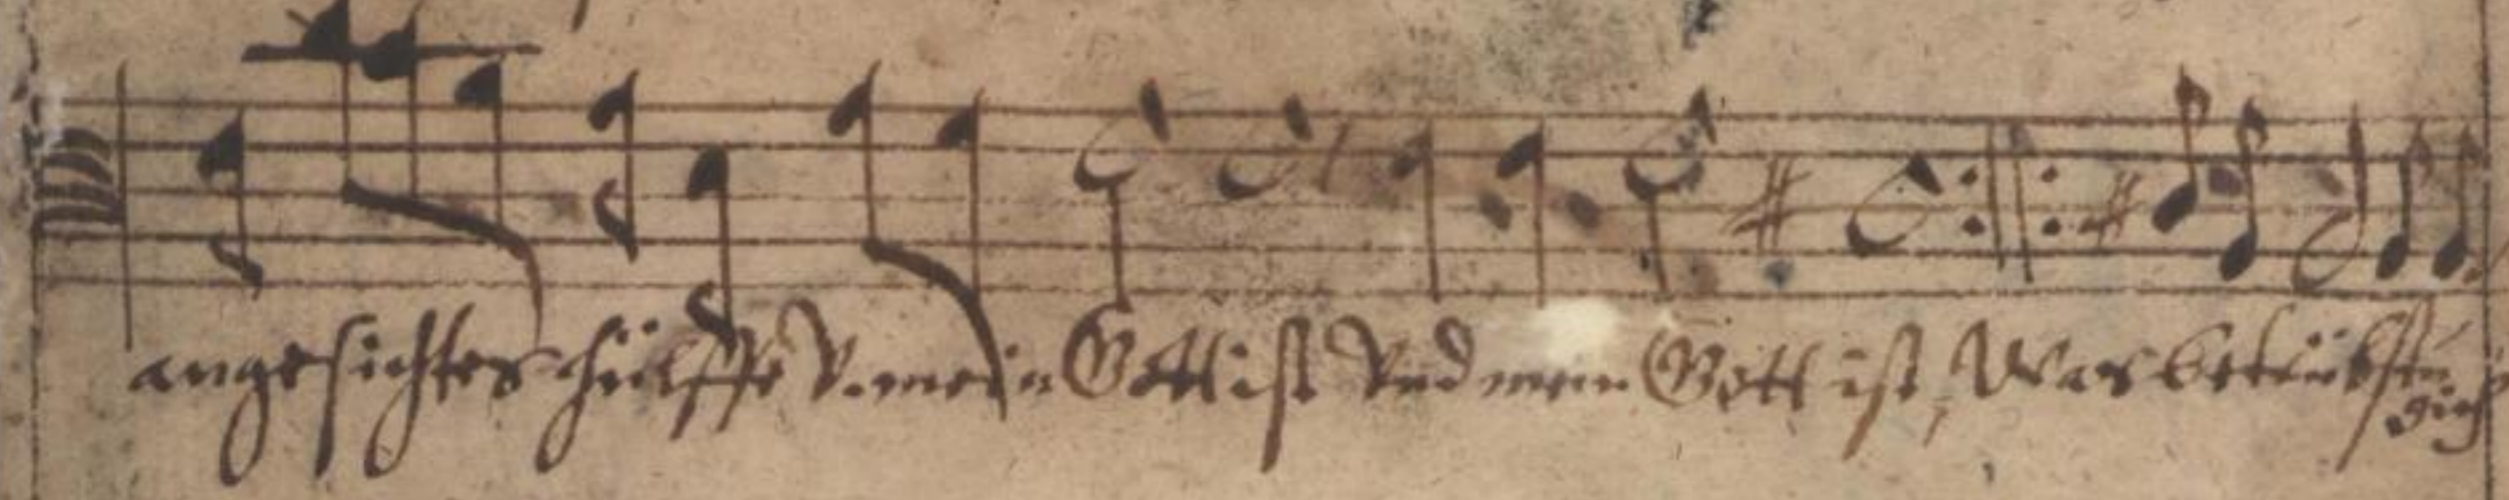 angesichtes hülffe V. mein Gott ist Vnd mein Gott ist, Was betrübstu
dich